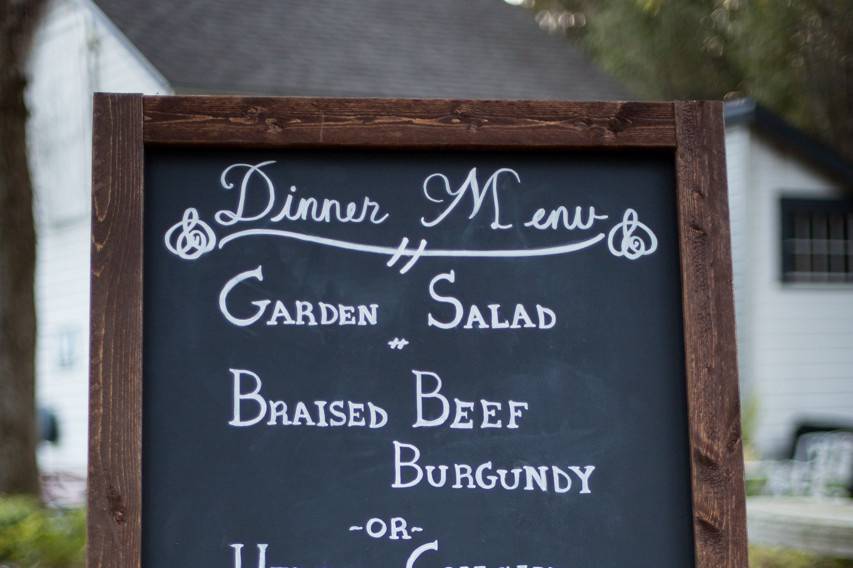 Dinner Menu
GARDEN SALAD
BRAISED BEEF
BURGUNDY
~OR~